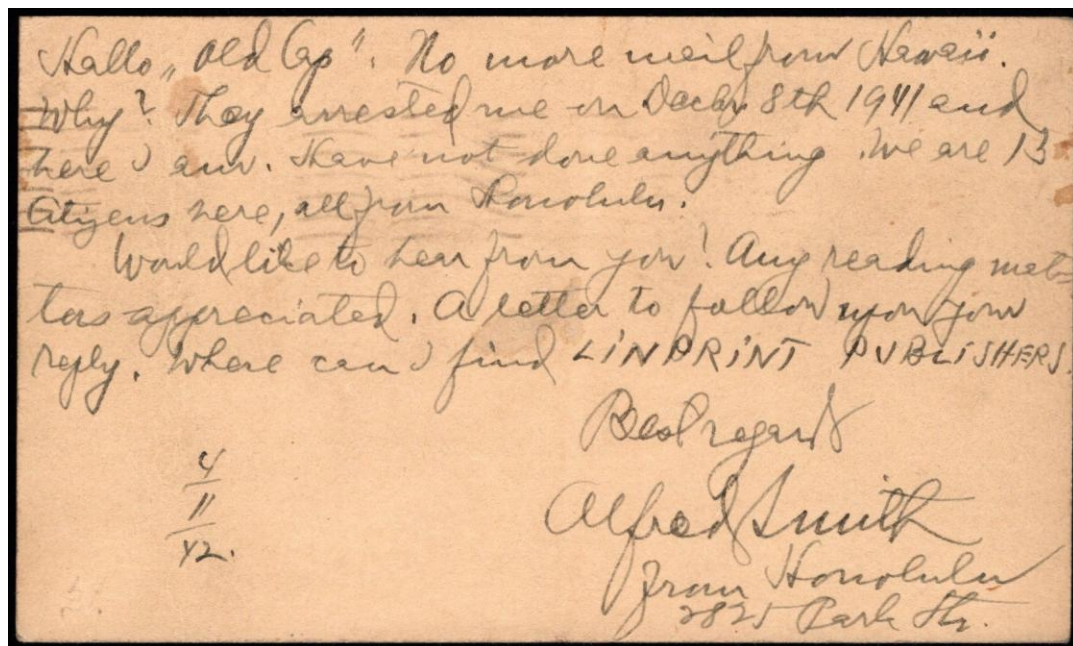 Hallo „Old Cap". No more mail from Hawaii.
Why? They arrested me on Decbr 8th 1941 and
here I am. Have not done anything. We are 13
Citizens here, all from Honolulu.
Would like to hear from you! Any reading mat-
ters appreciated. A letter to follow upon your
reply. Where can I find LINPRINT PUBLISHERS.
Best regards
Alfred Smith
from Honolulu
2825 Park Str.
4
11
42.